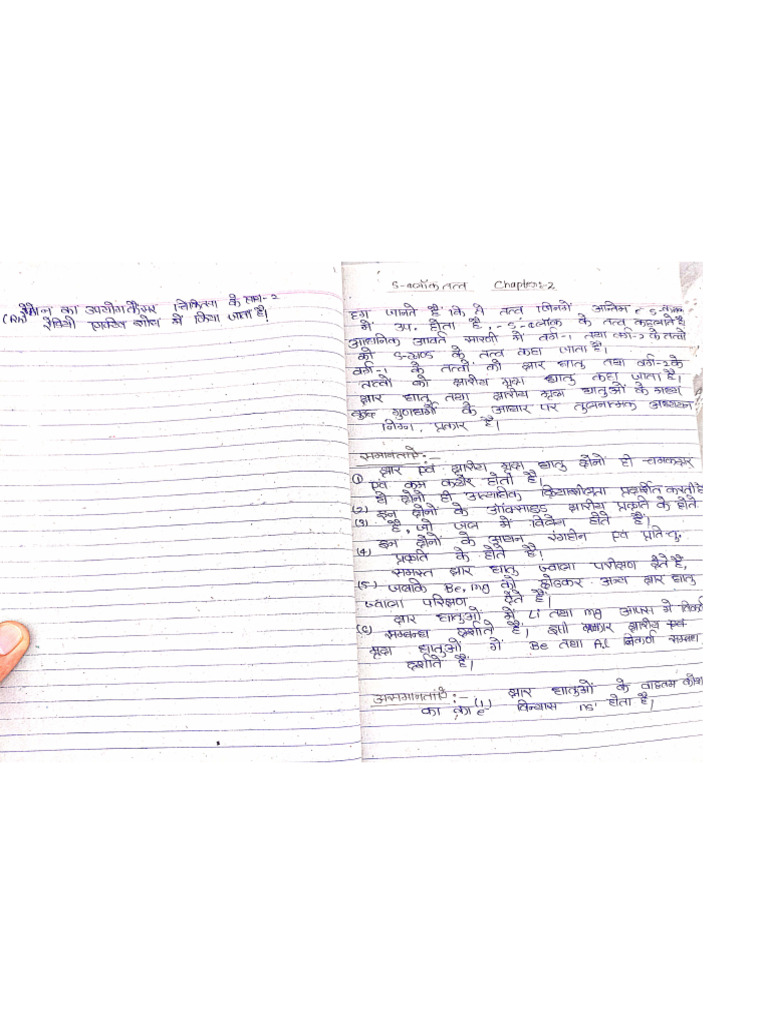 रेडॉन का उपयोग कैंसर चिकित्सा के
(Rn) रेडियो एक्टिव शोध में किया जाता है।
S-ब्लॉक तत्व Chapter-2
हम जानते है कि वे तत्व जिनमें अन्तिम e S-
में उप. होता है, - S-ब्लॉक के तत्व कहलाते है
आधुनिक आवर्त सारणी में वर्ग-1 तथा वर्ग-2 के तत्वो
को S- के तत्व कहा जाता है।
वर्ग-1 के तत्वों को क्षार धातु तथा वर्ग-2 के
तत्वो को क्षारीय मृदा धातु कहा जाता है।
क्षार धातु तथा क्षारीय मृदा धातुओं के मध्य
कुछ गुणधर्मो के आधार पर तुलनात्मक अध्ययन
निम्न प्रकार है।
समानताऐं:-
(1) क्षार एवं क्षारीय मृदा धातु दोनों ही चमकदार
एवं कम कठोर होती है।
(2) ये दोनो ही क्रियाशीलता प्रदर्शित करती है
(3) इन दोनो के ऑक्साइड क्षारीय प्रकृति के होते
है, जो जल में विलेय होते है।
(4) इन दोनो के आयन रंगहीन एवं प्रतिचु.
प्रकृति के होते है।
(5) समस्त क्षार धातु ज्वाला परीक्षण देते है,
जबकि Be, mg को छोडकर अन्य क्षार धातु
ज्वाला परिक्षण देते है।
(6) क्षार धातुओं में Li तथा mg आपस में विकर्ण
सम्बन्ध दर्शाते है। इसी प्रकार क्षारीय
मृदा धातुओं में Be तथा Al विकर्ण सम्बन्ध
दर्शाते है।
असमानताऐं:- (1) क्षार धातुओं के वाह्यतम कोश
का e⁻ विन्यास ns¹ होता है।